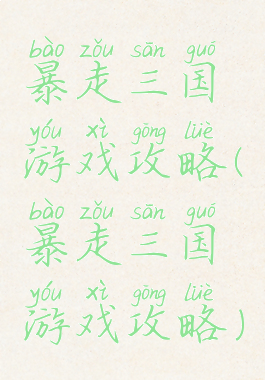 bào zǒu sān guó
暴走三国
yóu xì gōng lüè
游戏攻略(
bào zǒu sān guó
暴走三国
yóu xì gōng lüè
游戏攻略)